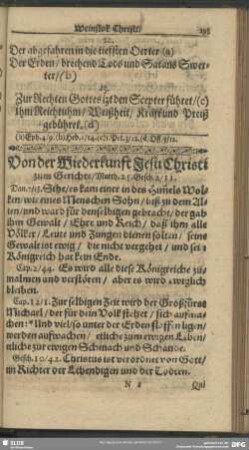 Weinstock Christi.
Der abgefahren in die tieffsten Oerter (a)
Der Erden / brechend Tods und Satans
ter / (b)
Zur Rechten Gottes itzt den Scepter führet / (c)
Ihm Reichthum / Weißheit / Krafft und Preiß
gebühret. (d)
Von der Wiederkunft Jesu Christi
zum Gerichte / Matth. 25. Gesch. 2 / 11.
Dan. 7 / 13. Sihe / es kam einer in des Him̃els Wol-
ken / wie eines Menschen Sohn / biß zu dem Al-
ten / und ward für denselbigen gebracht / der gab
ihm Gewalt / Ehre und Reich / daß ihm alle
Völker / Leute und Zungen dienen solten / seine
Gewalt ist ewig / die nicht vergehet / und sei-
Königreich hat kein Ende.
Cap. 2 / 44. Es wird alle diese Königreiche zu-
malmen und verstören / aber es wird ewiglich
bleiben.
Cap. 12 / 1. Zur selbigen Zeit wird der Großfürst
Michael / der für dein Volk stehet / sich aufma-
chen: Und viel / so unter der Erden
werden aufwachen / etliche zum ewigen Leben /
etliche zur ewigen Schmach und Schande.
Gesch. 10 / 42. Christus ist verordnet von Gott /
im Richter der Lebendigen und der Todten.
N
SLUB